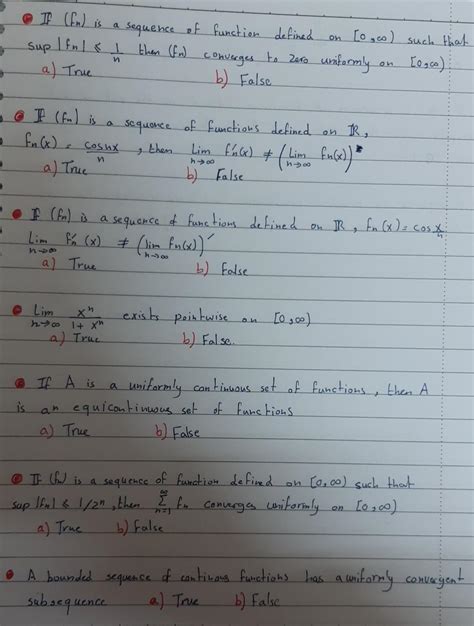 If (fn) is a sequence of function defined on [0,∞) such that
sup |fn| ≤ 1/n then (fn) converges to zero uniformly on [0,∞)
a) True b) False
If (fn) is a sequence of functions defined on ℝ,
fn(x) = cosnx/n, then Lim n→∞ f'n(x) ≠ (Lim n→∞ fn(x))'
a) True b) False
If (fn) is a sequence of functions defined on ℝ, fn(x) = cos x/n
Lim n→∞ f'n(x) ≠ (lim n→∞ fn(x))'
a) True b) False
Lim n→∞ xⁿ/1+xⁿ exists pointwise on [0,∞)
a) True b) False.
If A is a uniformly continuous set of functions, then A
is an equicontinuous set of functions
a) True b) False
If (fn) is a sequence of function defined on [0,∞) such that
sup |fn| ≤ 1/2ⁿ, then ∑ n=1 ∞ fn converges uniformly on [0,∞)
a) True b) False
A bounded sequence of continous functions has a uniformly convergent
subsequence a) True b) False